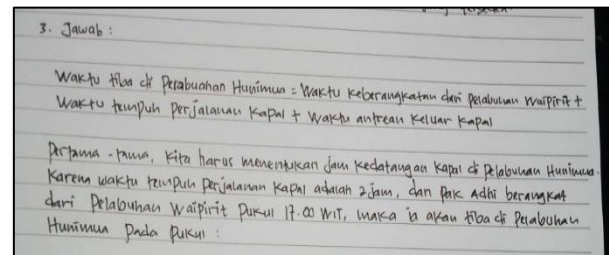 3. Jawab :
Waktu tiba di Perabuahan Hunimua = Waktu keberangkatan dari pelabuhan waipirit +
Waktu tempuh perjalanan kapal + Waktu antrean keluar kapal
Pertama - tama, kita harus menentukan jam kedatangan kapal di Pelabuhan Hunimua.
Karena waktu tempuh perjalanan kapal adalah 2 jam, dan Pak Adhi berangkat
dari Pelabuhan Waipirit Pukul 17.00 WIT, maka ia akan tiba di Pelabuhan
Hunimua pada pukul :